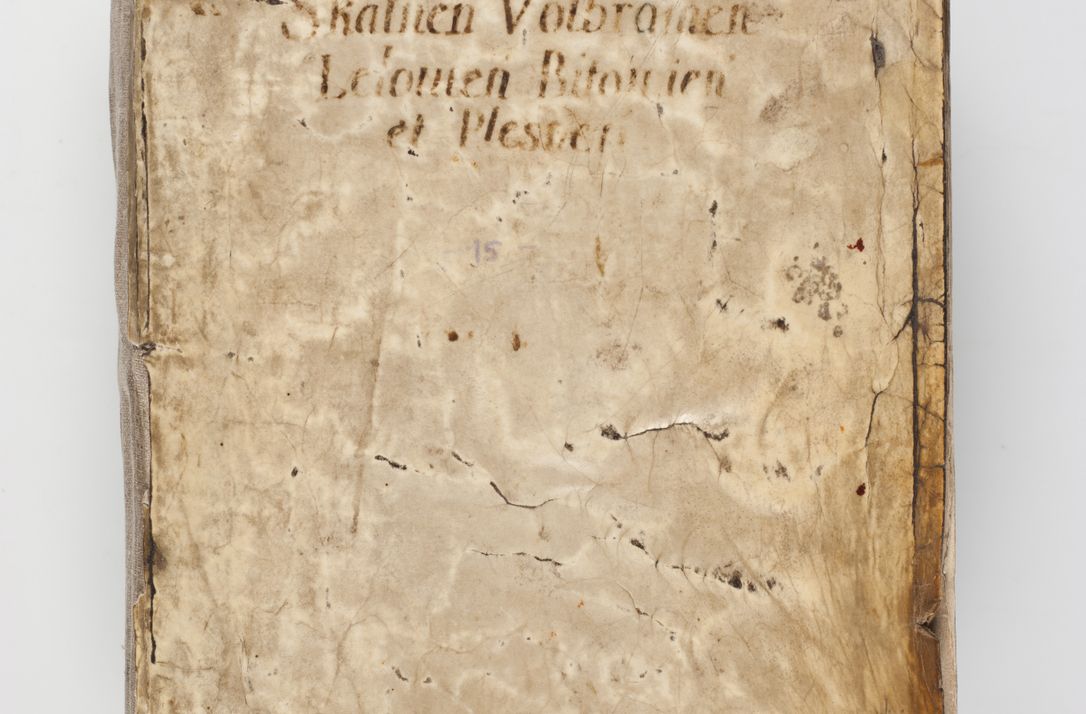 Skalnen Volbramen
Lelovien Bitomien
et Plesven
15